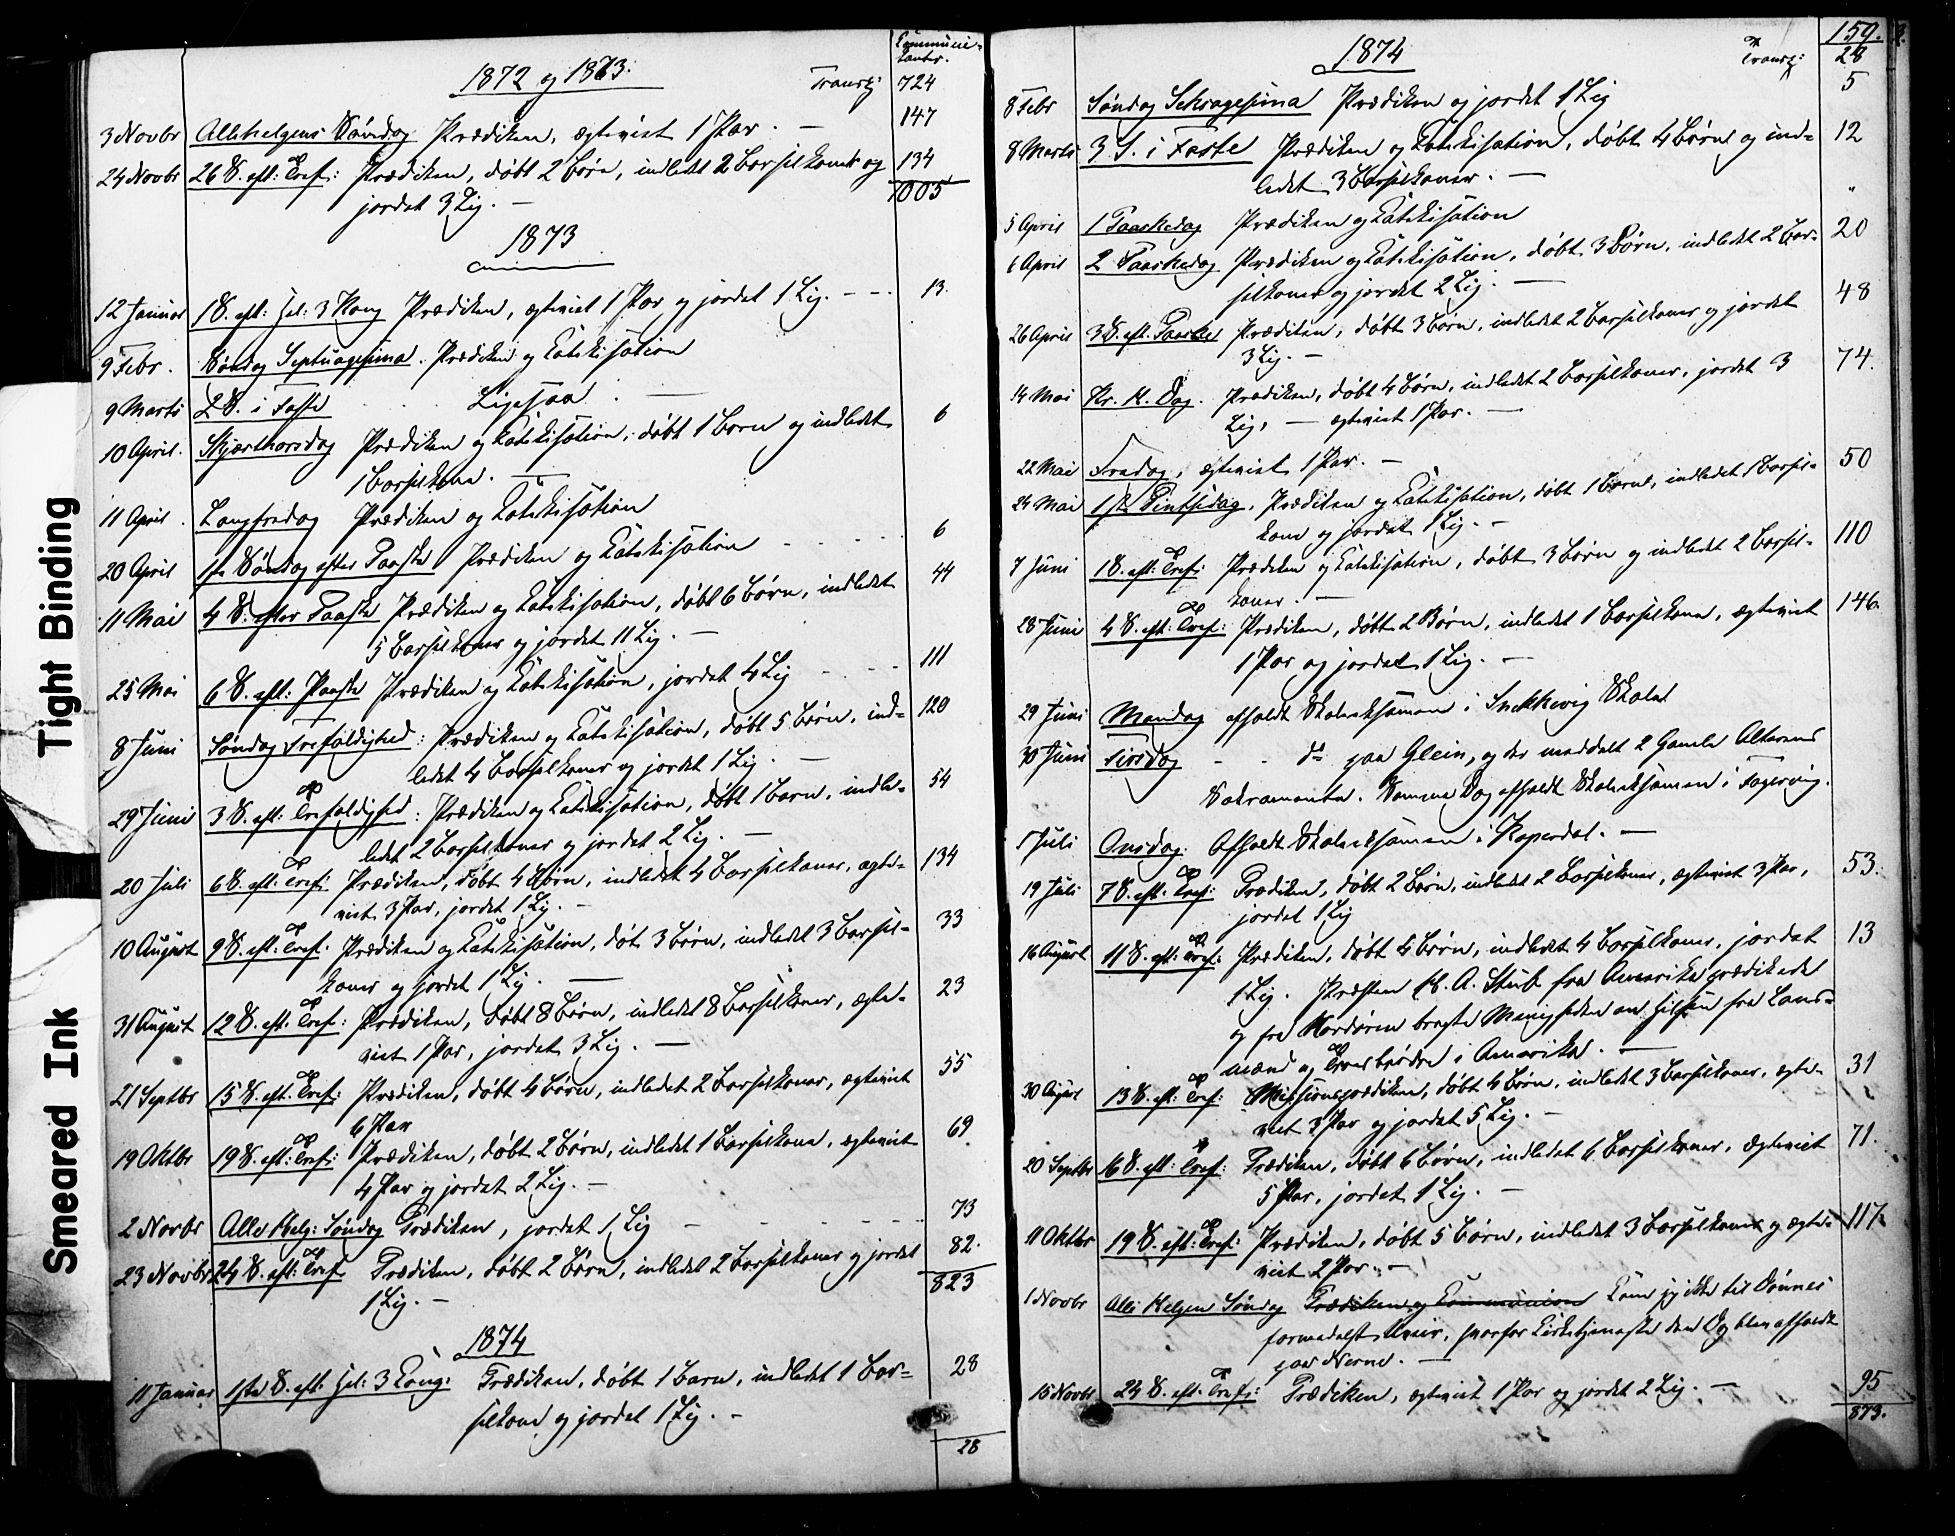 Tight Binding
Smeared Ink
Communi-
canter.
1872 og 1873.
Transp: 724
3 Novbr Allehelgens Søndag Prædiken, ægteviet 1 Par. — 147
24 Novbr 26 S. eft: Tref: Prædiken, døbt 2 Børn, indledet 2 Barselkoner og 134
jordet 3 Lig. — 1005
1873
12 Januar 1 S. eft: Hel: 3 Kong Prædiken, ægteviet 1 Par og jordet 1 Lig. - - - 13.
9 Febr. Søndag Septuagesima. Prædiken og Catekisation
9 Marts 2 S. i Faste Ligesaa. —
10 April. Skjærthorsdag Prædiken og Catekisation, døbt 1 Barn og indledet 6
1 Barselkone. —
11 April. Langfredag Prædiken og Catekisation
20 April 1ste Søndag efter Paaske Prædiken og Catekisation - - - - 6
11 Mai 4 S. efter Paaske Prædiken og Catekisation, døbt 6 Børn, indledet 44
5 Barselkoner og jordet 11 Lig. —
25 Mai 6 S. eft: Paaske Prædiken og Catekisation, jordet 4 Lig - - - - 111
8 Juni Søndag Trefoldighed: Prædiken og Catekisation, døbt 5 Børn, ind= 120
ledet 4 Barselkoner og jordet 1 Lig. —
29 Juni 3 S. eft: Trefoldighed: Prædiken og Catekisation, døbt 1 Barn, indle= 54
ledet 2 Barselkoner og jordet 2 Lig. —
20 Juli 6 S. eft: Tref: Prædiken, døbt 4 Børn, indledet 4 Barselkoner, ægte= 134
viet 3 Par, jordet 1 Lig. —
10 August 9 S. eft: Tref. Prædiken og Catekisation, døbt 3 Børn, indledet 3 Barsel= 33
koner og jordet 1 Lig. —
31 August 12 S. eft. Tref: Prædiken, døbt 8 Børn, indledet 8 Barselkoner, ægte= 23
viet 1 Par, jordet 3 Lig. —
21 Septbr 15 S. eft. Tref: Prædiken, døbt 4 Børn, indledet 2 Barselkoner, ægteviet 55
6 Par
19 Oktbr 19 S. eft: Tref: Prædiken, døbt 2 Børn, indledet 1 Barselkone, ægteviet 69
4 Par og jordet 2 Lig. —
2 Novbr Alle Helg: Søndag Prædiken, jordet 1 Lig - - - - - - 73
23 Novbr 24 S. eft: Tref Prædiken, døbt 2 Børn, indledet 2 Barselkoner og jordet 82.
1 Lig. — 823
1874
11 Januar 1ste S. eft: Hel: 3 Kong: Prædiken, døbt 1 Barn, indledet 1 Bar= 28
selkone og jordet 1 Lig. —
28
159.
1874
Transp: 28
8 Febr Søndag Seksagesima Prædiken og jordet 1 Lig 5
8 Marts 3 S. i Faste Prædiken og Catekisation, døbt 4 Børn og ind= 12
ledet 3 Barselkoner. —
5 April 1 Paaskedag Prædiken og Catekisation "
6 April 2 Paaskedag Prædiken og Catekisation, døbt 3 Børn, indledet 2 Bar= 20
selkoner og jordet 2 Lig. —
26 April 3 S. eft. Paaske Prædiken, døbt 3 Børn, indledet 2 Barselkoner og jordet 48
3 Lig. —
14 Mai Kr. H. Dag. Prædiken, døbt 4 Børn, indledet 2 Barselkoner, jordet 3 74.
Lig, — ægteviet 1 Par. —
22 Mai Fredag, ægteviet 1 Par. —
24 Mai 1ste Pintsedag. Prædiken og Catekisation, døbt 1 Barn, indledet 1 Barsel= 50
kone og jordet 1 Lig. —
7 Juni 1 S. eft: Tref: Prædiken og Catekisation, døbt 3 Børn og indledet 2 Barsel= 110
koner. —
28 Juni 4 S. eft: Tref: Prædiken, døbt 2 Børn, indledet 1 Barselkone, ægteviet 146.
1 Par og jordet 1 Lig. —
29 Juni Mandag afholdt Skoleeksamen i Snekkevig Skole
30 Juni Tirsdag - - do paa Glein, og der meddelt 2 Gamle Alterens
Sakramente. Samme Dag afholdt Skoleeksamen i Fagervig.
1 Juli Onsdag. Afholdt Skoleeksamen i Kopardal. —
19 Juli 7 S. eft: Tref: Prædiken, døbt 2 Børn, indledet 2 Barselkoner, ægteviet 3 Par, 53.
jordet 1 Lig
16 August 11 S. eft: Tref: Prædiken, døbt 4 Børn, indledet 4 Barselkoner, jordet 13
1 Lig. Præsten H. A. Stub fra Amerika prædikede
og fra Kordøren bragte Menigheden en Hilsen fra Lands=
mænd og Troesbrødre i Amerika. —
30 August 13 S. eft: Tref: Missionsprædiken, døbt 4 Børn, indledet 3 Barselkoner, ægte= 31
viet 3 Par og jordet 5 Lig. —
20 Septbr 16 S. eft: Tref: Prædiken, døbt 6 Børn, indledet 6 Barselkoner, ægteviet 71.
5 Par, jordet 1 Lig. —
11 Oktbr 19 S. eft: Tref: Prædiken, døbt 5 Børn, indledet 3 Barselkoner og ægte= 117.
viet 2 Par. —
1 Novbr Alle Helgen Søndag Prædiken og Communion Kom jeg ikke til Dønnes
formedelst Uveir, hvorfor Kirketjeneste den Dag blev afholdt
paa Nesne. —
15 Novbr 24 S. eft. Tref: Prædiken, ægteviet 1 Par og jordet 2 Lig. — 95
873.